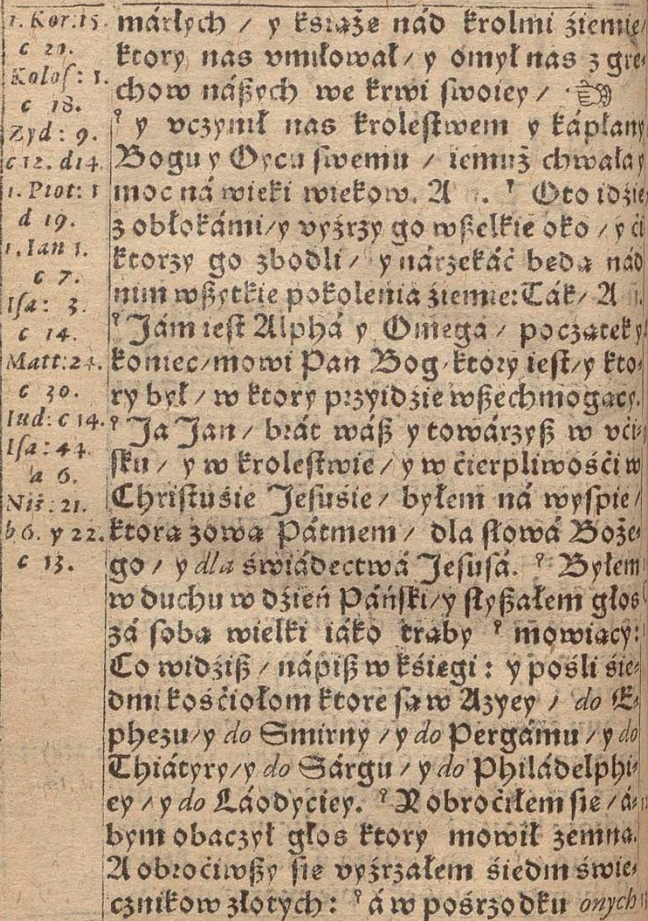 1. Kor: 15.
c 21.
Kolos: 1.
c 18.
Zyd: 9.
c 12. d 14.
1. Piot: 1
d 19.
1. Ian 1.
c 7.
Isa: 3.
c 14.
Matt: 24.
c 30.
Iud: c 14.
Isa: 44.
a 6.
Niż: 21.
b 6. y 22.
c 13.
márłych / y ksiąze nád krolmi źiemie/
ktory nas vmiłował / y omył nas z grze-
chow nászych we krwi swoiey / ☜
y vczynił nas krolestwem y kápłany
Bogu y Oycu swemu / iemuż chwałá y
moc ná wieki wiekow. A . Oto idzie
z obłokámi / y vyźrzy go wszelkie oko / y ći
ktorzy go zbodli / y nárzekáć będą nád
nim wszytkie pokolenia źiemie: Ták / A
Jám iest Alphá y Omega / początek y
koniec / mowi Pan Bog, ktory iest / y kto-
ry był / w ktory przyidzie wszechmogący.
Ja Jan / brát wász y towárzysz w vći-
sku / y w krolestwie / y w ćierpliwośći w
Christuśie Jesuśie / byłem ná wyspie /
ktorą zową Pátmem / dla słowá Boże-
go / y dla świádectwá Jesusá. Byłem
w duchu w dźień Páński / y słyszałem głos
zá sobą wielki iáko trąby mowiący:
Co widźisz / nápisz w kśięgi: y pośli śie-
dmi kośćiołom ktore są w Azyey / do E-
phezu / y do Smirny / y do Pergámu / y do
Thiátyry / y do Sárgu / y do Philádelphi-
ey / y do Láodyciey. Y obroćiłem się / á-
bym obaczył głos ktory mowił zemną.
A obroćiwszy się vyźrzałem śiedm świe-
cznikow złotych: á w pośrzodku onych